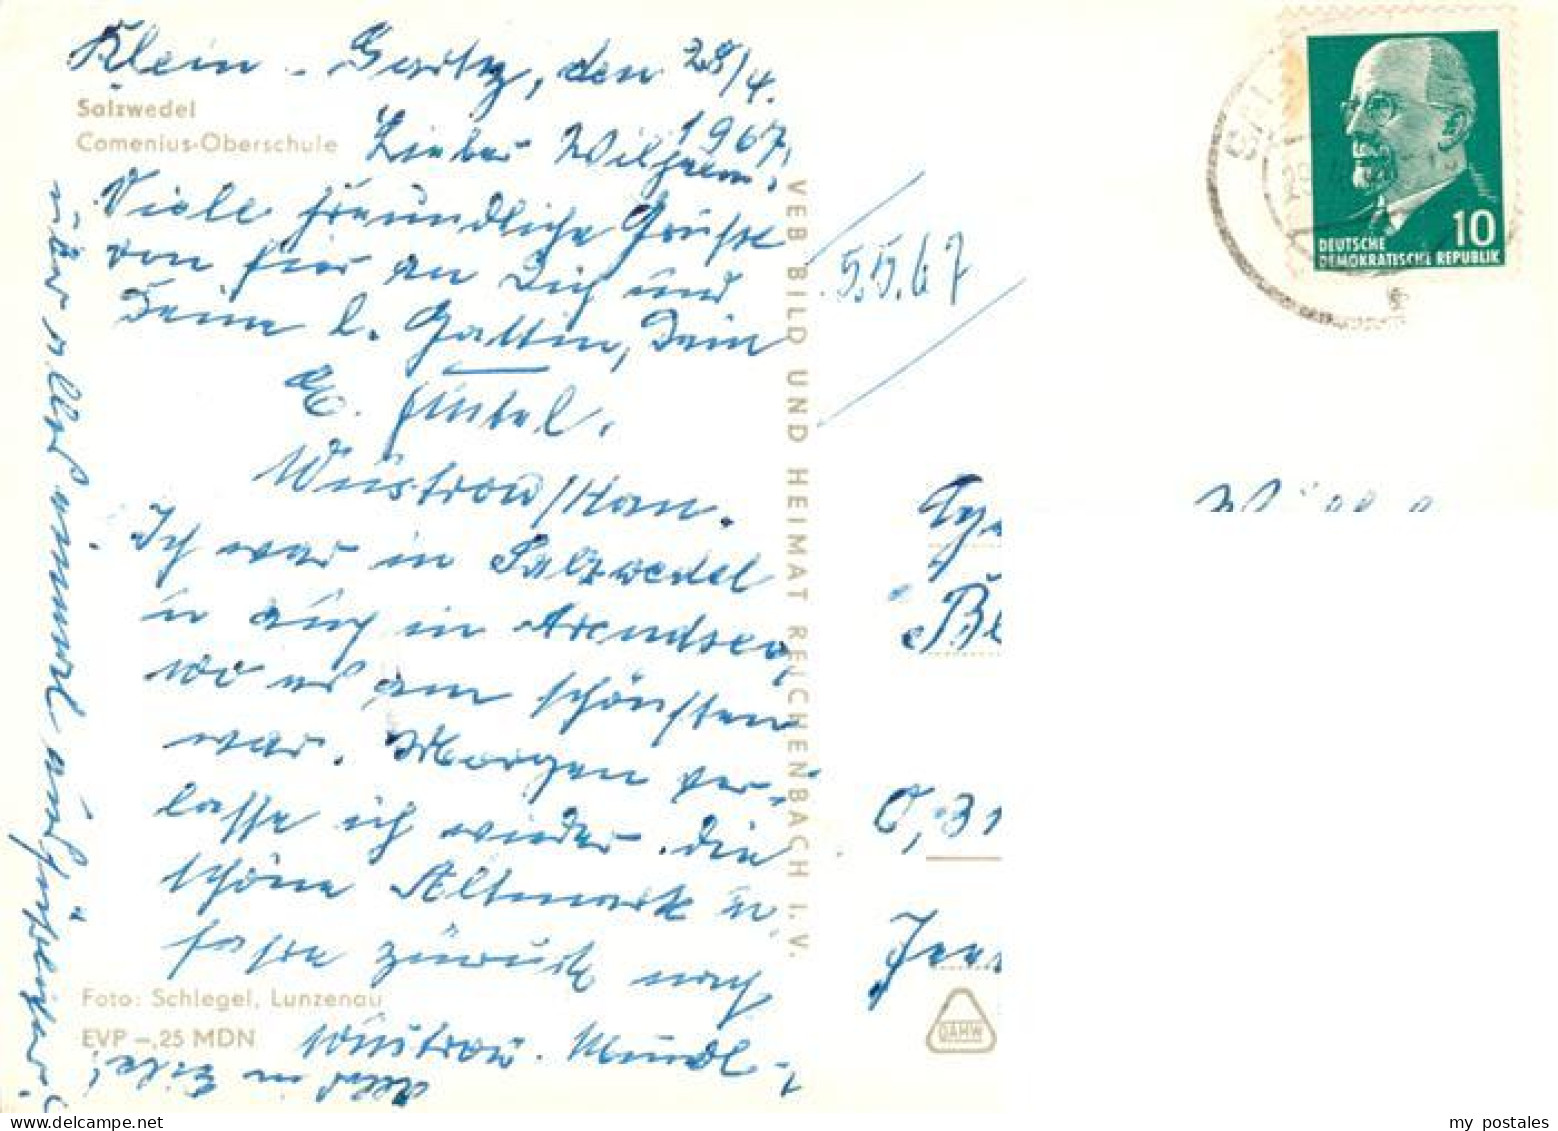 Klein-Gartz, den 28/4.
1967.
Salzwedel
Comenius-Oberschule
Lieber Wilhelm,
Viele freundliche Grüße
von hier an Dich und
Deine l. Gattin, Dein
E.
Wustrow/Han.
Ich war in Salzwedel
u auch in Arendsee,
wo es am schönsten
war. Morgen ver-
lasse ich wieder die
schöne Altmark u.
fahre zurück nach
Wustrow. Mündl-
über alles einmal
Alles in Eile!
Foto: Schlegel, Lunzenau
EVP -,25 MDN
VEB BILD UND HEIMAT REICHENBACH I. V.
5.5.67
DEUTSCHE
DEMOKRATISCHE REPUBLIK
10
DAHW
my postales
delcampe.net